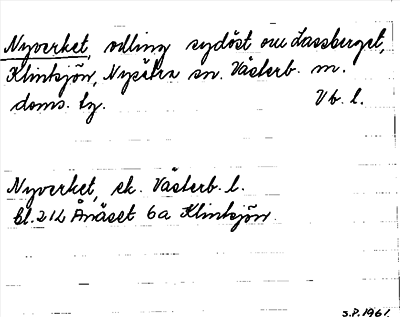 Nyverket, odling sydöst om Lassberget,
Klinksjön, Nysätra sn. Västerb. m.
doms. lg. Vb. l.
Nyverket, ek. Västerb. l.
bl. 21L Ånäset 6a Klinksjön.
S.P. 1961.